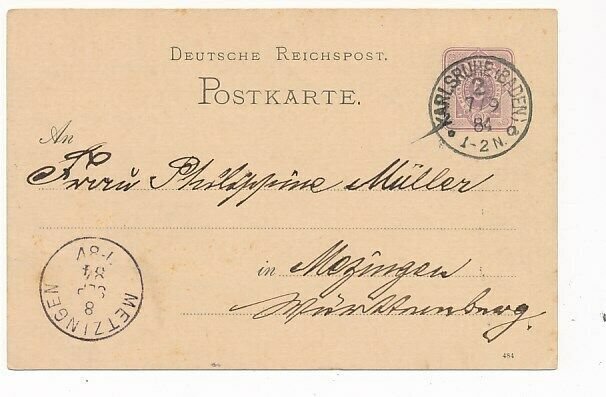 DEUTSCHE REICHSPOST.
POSTKARTE.
KARLSRUHE (BADEN)
2
7 9
84
1-2 N.
An
Frau Philippine Müller
in Metzingen
Württemberg.
METZINGEN
8
SEP
84
7-8V
484